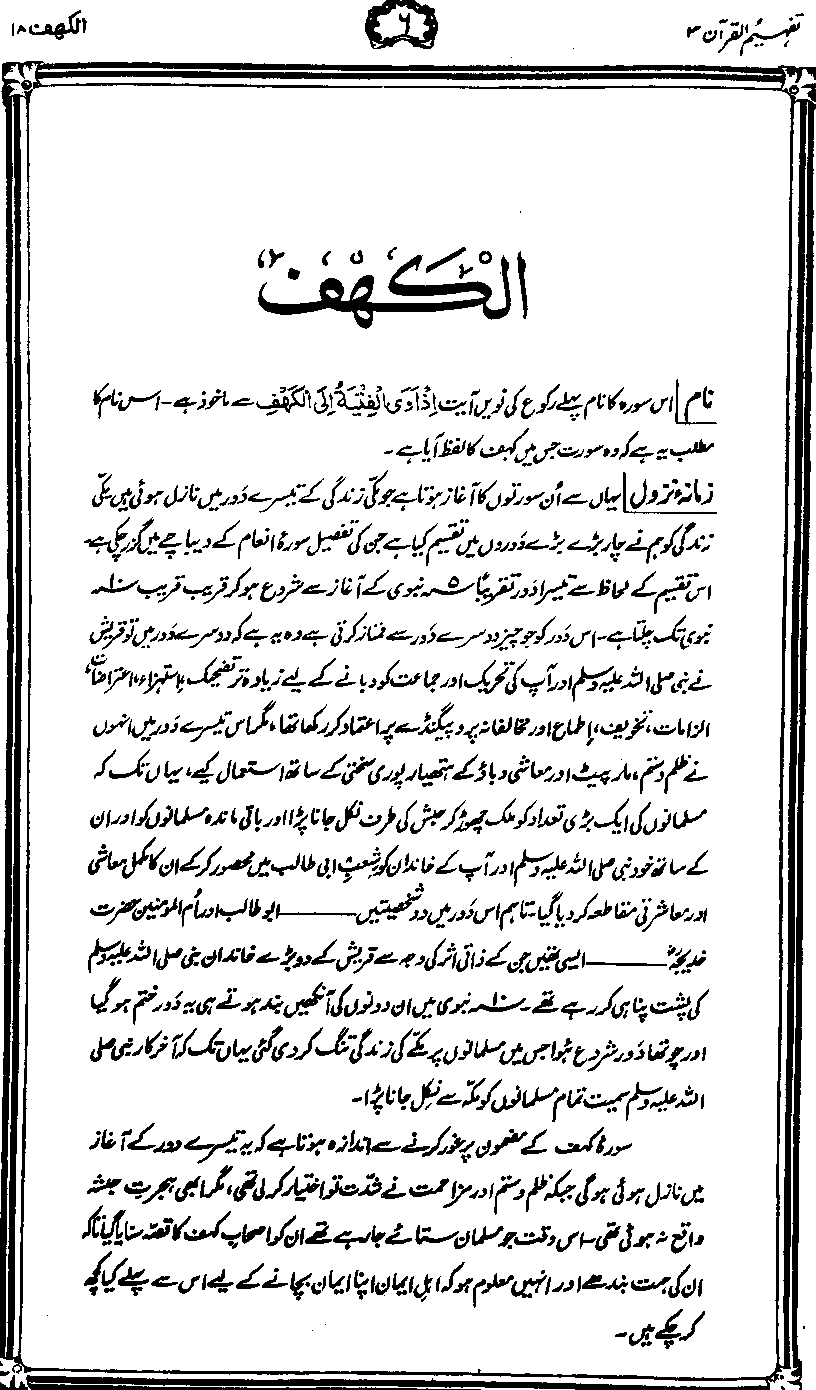 تفہیم القرآن ۳
۶
الکہف ۱۸
الْكَهْفِ
نام اس سورہ کا نام پہلے رکوع کی نویں آیت اِذْ اَوَی الْفِتْیَةُ اِلَی الْکَھْفِ سے ماخوذ ہے۔ اس نام کا
مطلب یہ ہے کہ وہ سورت جس میں کہف کا لفظ آیا ہے۔
زمانۂ نزول یہاں سے اُن سورتوں کا آغاز ہوتا ہے جو مکی زندگی کے تیسرے دَور میں نازل ہوئی ہیں۔ مکی
زندگی کو ہم نے چار بڑے بڑے دَوروں میں تقسیم کیا ہے جن کی تفصیل سورۂ انعام کے دیباچے میں گزر چکی ہے۔
اس تقسیم کے لحاظ سے تیسرا دَور تقریباً ۵ سنہ نبوی کے آغاز سے شروع ہو کر قریب قریب ۱۰ سنہ
نبوی تک چلتا ہے۔ اس دَور کو جو چیز دوسرے دَور سے ممتاز کرتی ہے وہ یہ ہے کہ دوسرے دَور میں تو قریش
نے نبی صلی اللہ علیہ وسلم اور آپ کی تحریک اور جماعت کو دبانے کے لیے زیادہ تر تضحیک، استہزاء، اعتراضات،
الزامات، تخویف، اِطماع اور مخالفانہ پروپیگنڈے پر اعتماد کر رکھا تھا، مگر اس تیسرے دَور میں انہوں
نے ظلم و ستم، مار پیٹ اور معاشی دباؤ کے ہتھیار پوری سختی کے ساتھ استعمال کیے، یہاں تک کہ
مسلمانوں کی ایک بڑی تعداد کو ملک چھوڑ کر حبش کی طرف نکل جانا پڑا اور باقی ماندہ مسلمانوں کو اور ان
کے ساتھ خود نبی صلی اللہ علیہ وسلم اور آپ کے خاندان کو شعبِ ابی طالب میں محصور کر کے ان کا مکمل معاشی
اور معاشرتی مقاطعہ کر دیا گیا۔ تاہم اس دَور میں دو شخصیتیں ــــــ ابو طالب اور اُم المومنین حضرت
خدیجہؓ ــــــ ایسی تھیں جن کے ذاتی اثر کی وجہ سے قریش کے دو بڑے خاندان نبی صلی اللہ علیہ وسلم
کی پشت پناہی کر رہے تھے۔ ۱۰ سنہ نبوی میں ان دونوں کی آنکھیں بند ہوتے ہی یہ دَور ختم ہو گیا
اور چوتھا دَور شروع ہوا جس میں مسلمانوں پر مکے کی زندگی تنگ کر دی گئی یہاں تک کہ آخر کار نبی صلی
اللہ علیہ وسلم سمیت تمام مسلمانوں کو مکہ سے نکل جانا پڑا۔
سورۂ کہف کے مضمون پر غور کرنے سے اندازہ ہوتا ہے کہ یہ تیسرے دور کے آغاز
میں نازل ہوئی ہوگی جبکہ ظلم و ستم اور مزاحمت نے شدّت تو اختیار کر لی تھی، مگر ابھی ہجرتِ حبشہ
واقع نہ ہوئی تھی۔ اس وقت جو مسلمان ستائے جا رہے تھے ان کو اصحابِ کہف کا قصّہ سنایا گیا تاکہ
ان کی ہمت بندھے اور انہیں معلوم ہو کہ اہلِ ایمان اپنا ایمان بچانے کے لیے اس سے پہلے کیا کچھ
کر چکے ہیں۔